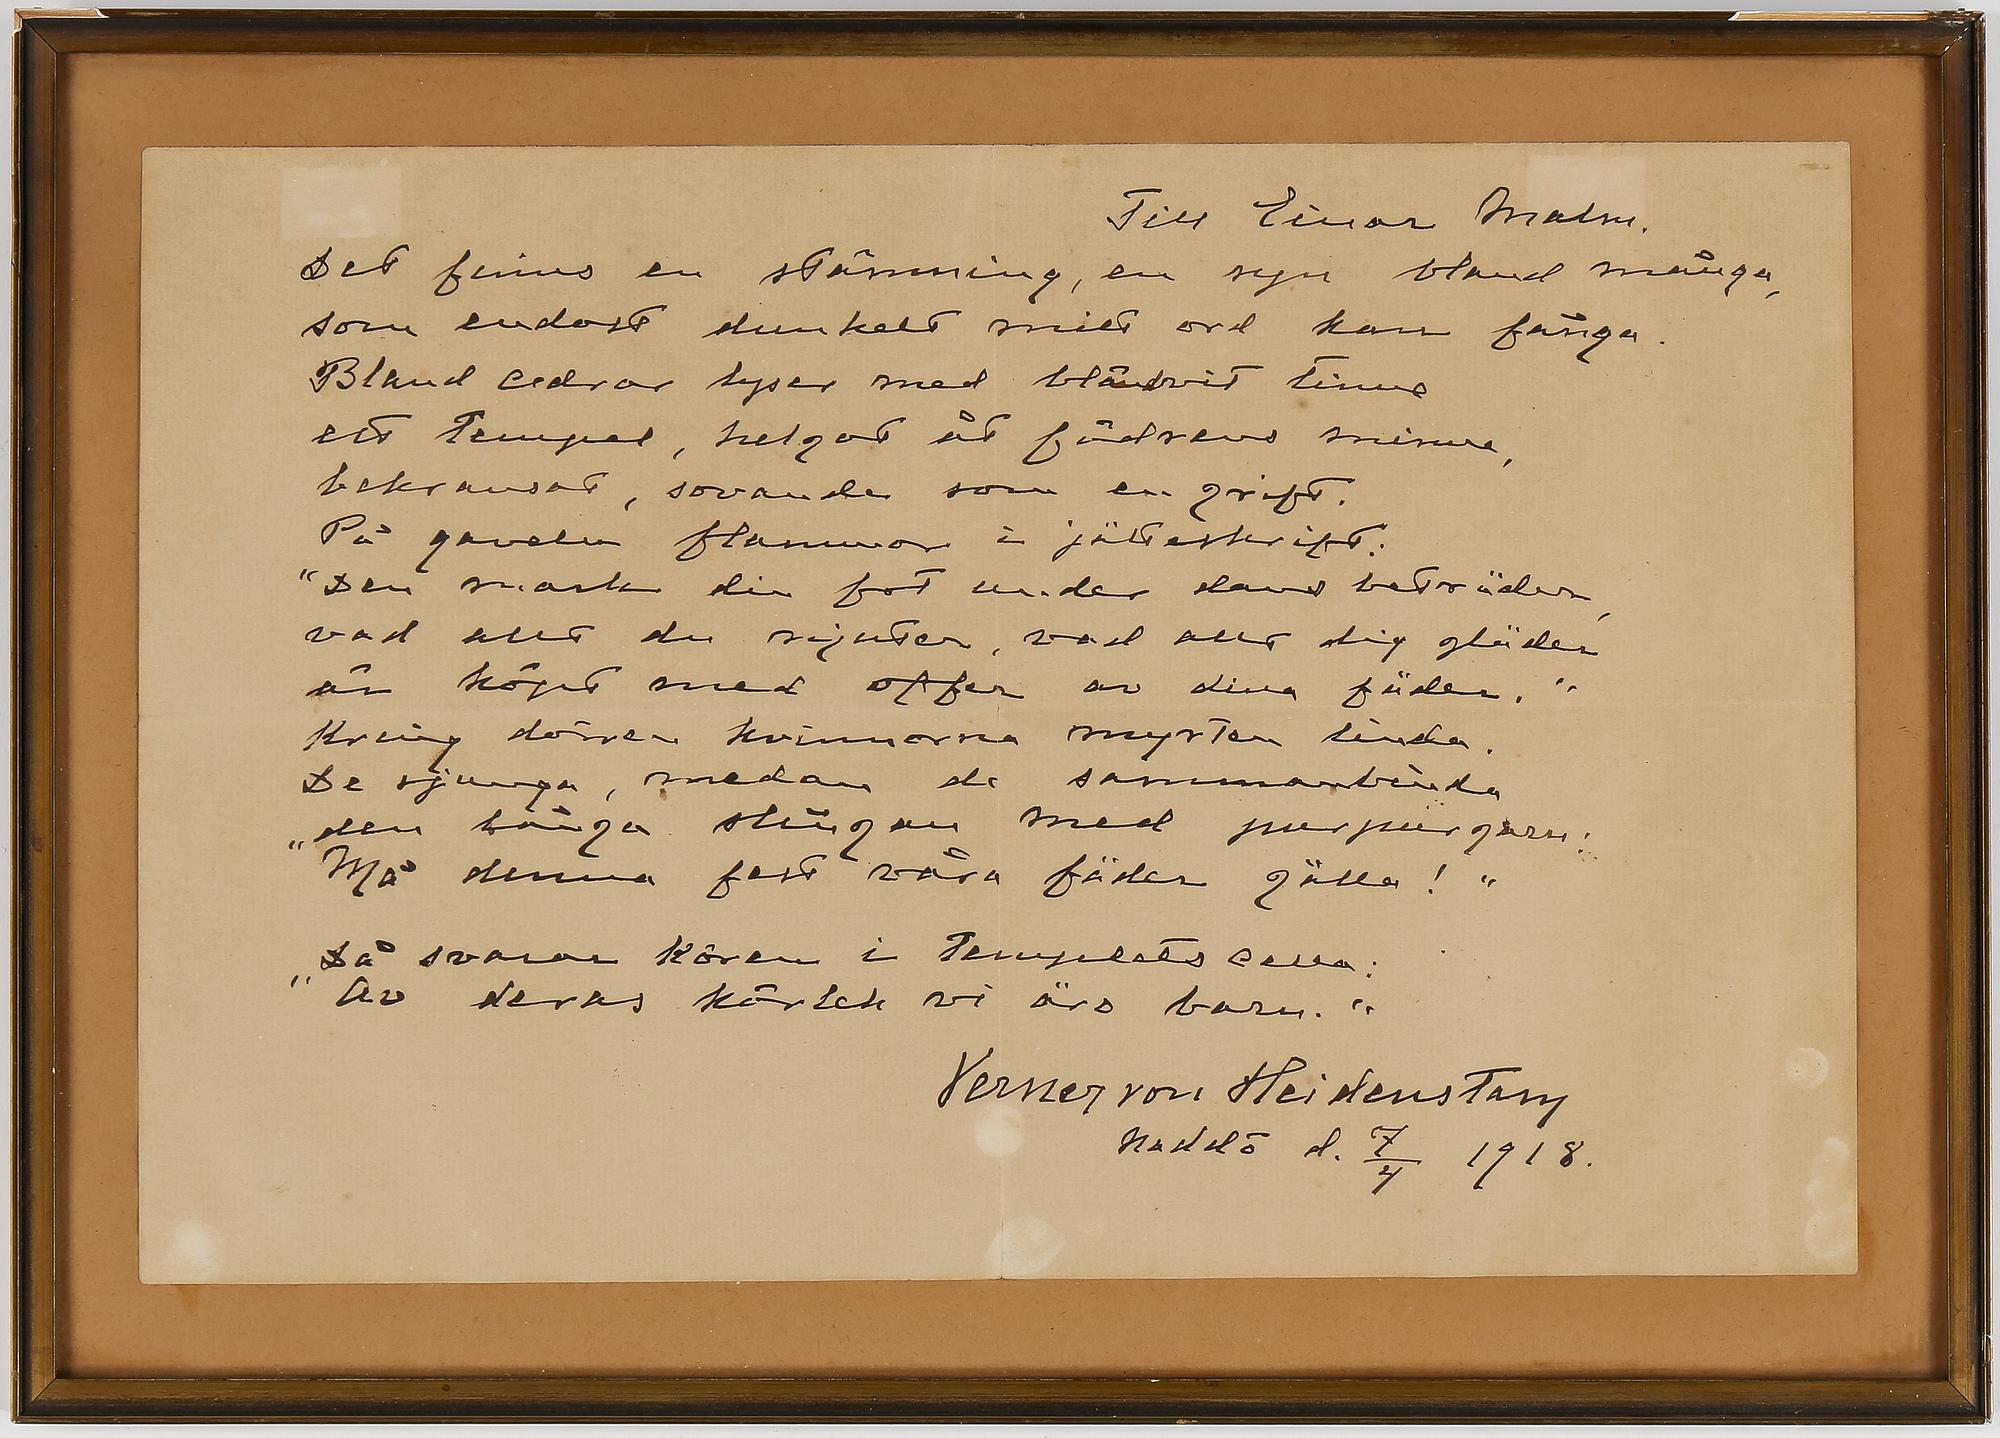 Till Einar Malm.
Det finns en stämning, en syn bland många,
som endast dunkelt mitt ord kan fånga.
Bland cedrar lyser med bländvit tinne
ett tempel, helgat åt fädrens minne,
bekransat, sovande som en grift.
På gaveln flammar i jätteskrift:
"Den mark din fot under dans beträder,
vad allt du njuter, vad allt dig gläder
är köpt med offer av dina fäder."
Kring dörren kvinnorna myrten linda.
De sjunga, medan de sammanbinda
den långa slingan med purpurgarn:
"Må denna fest våra fäder gälla!"
Då svarar kören i templets cella:
"Av deras kärlek vi äro barn."
Verner von Heidenstam
Naddö d. 7/4 1918.